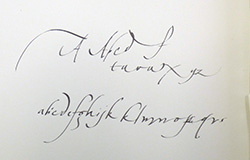 A Abcd f
t u v w x y z
abcdefghijk klmnopqr